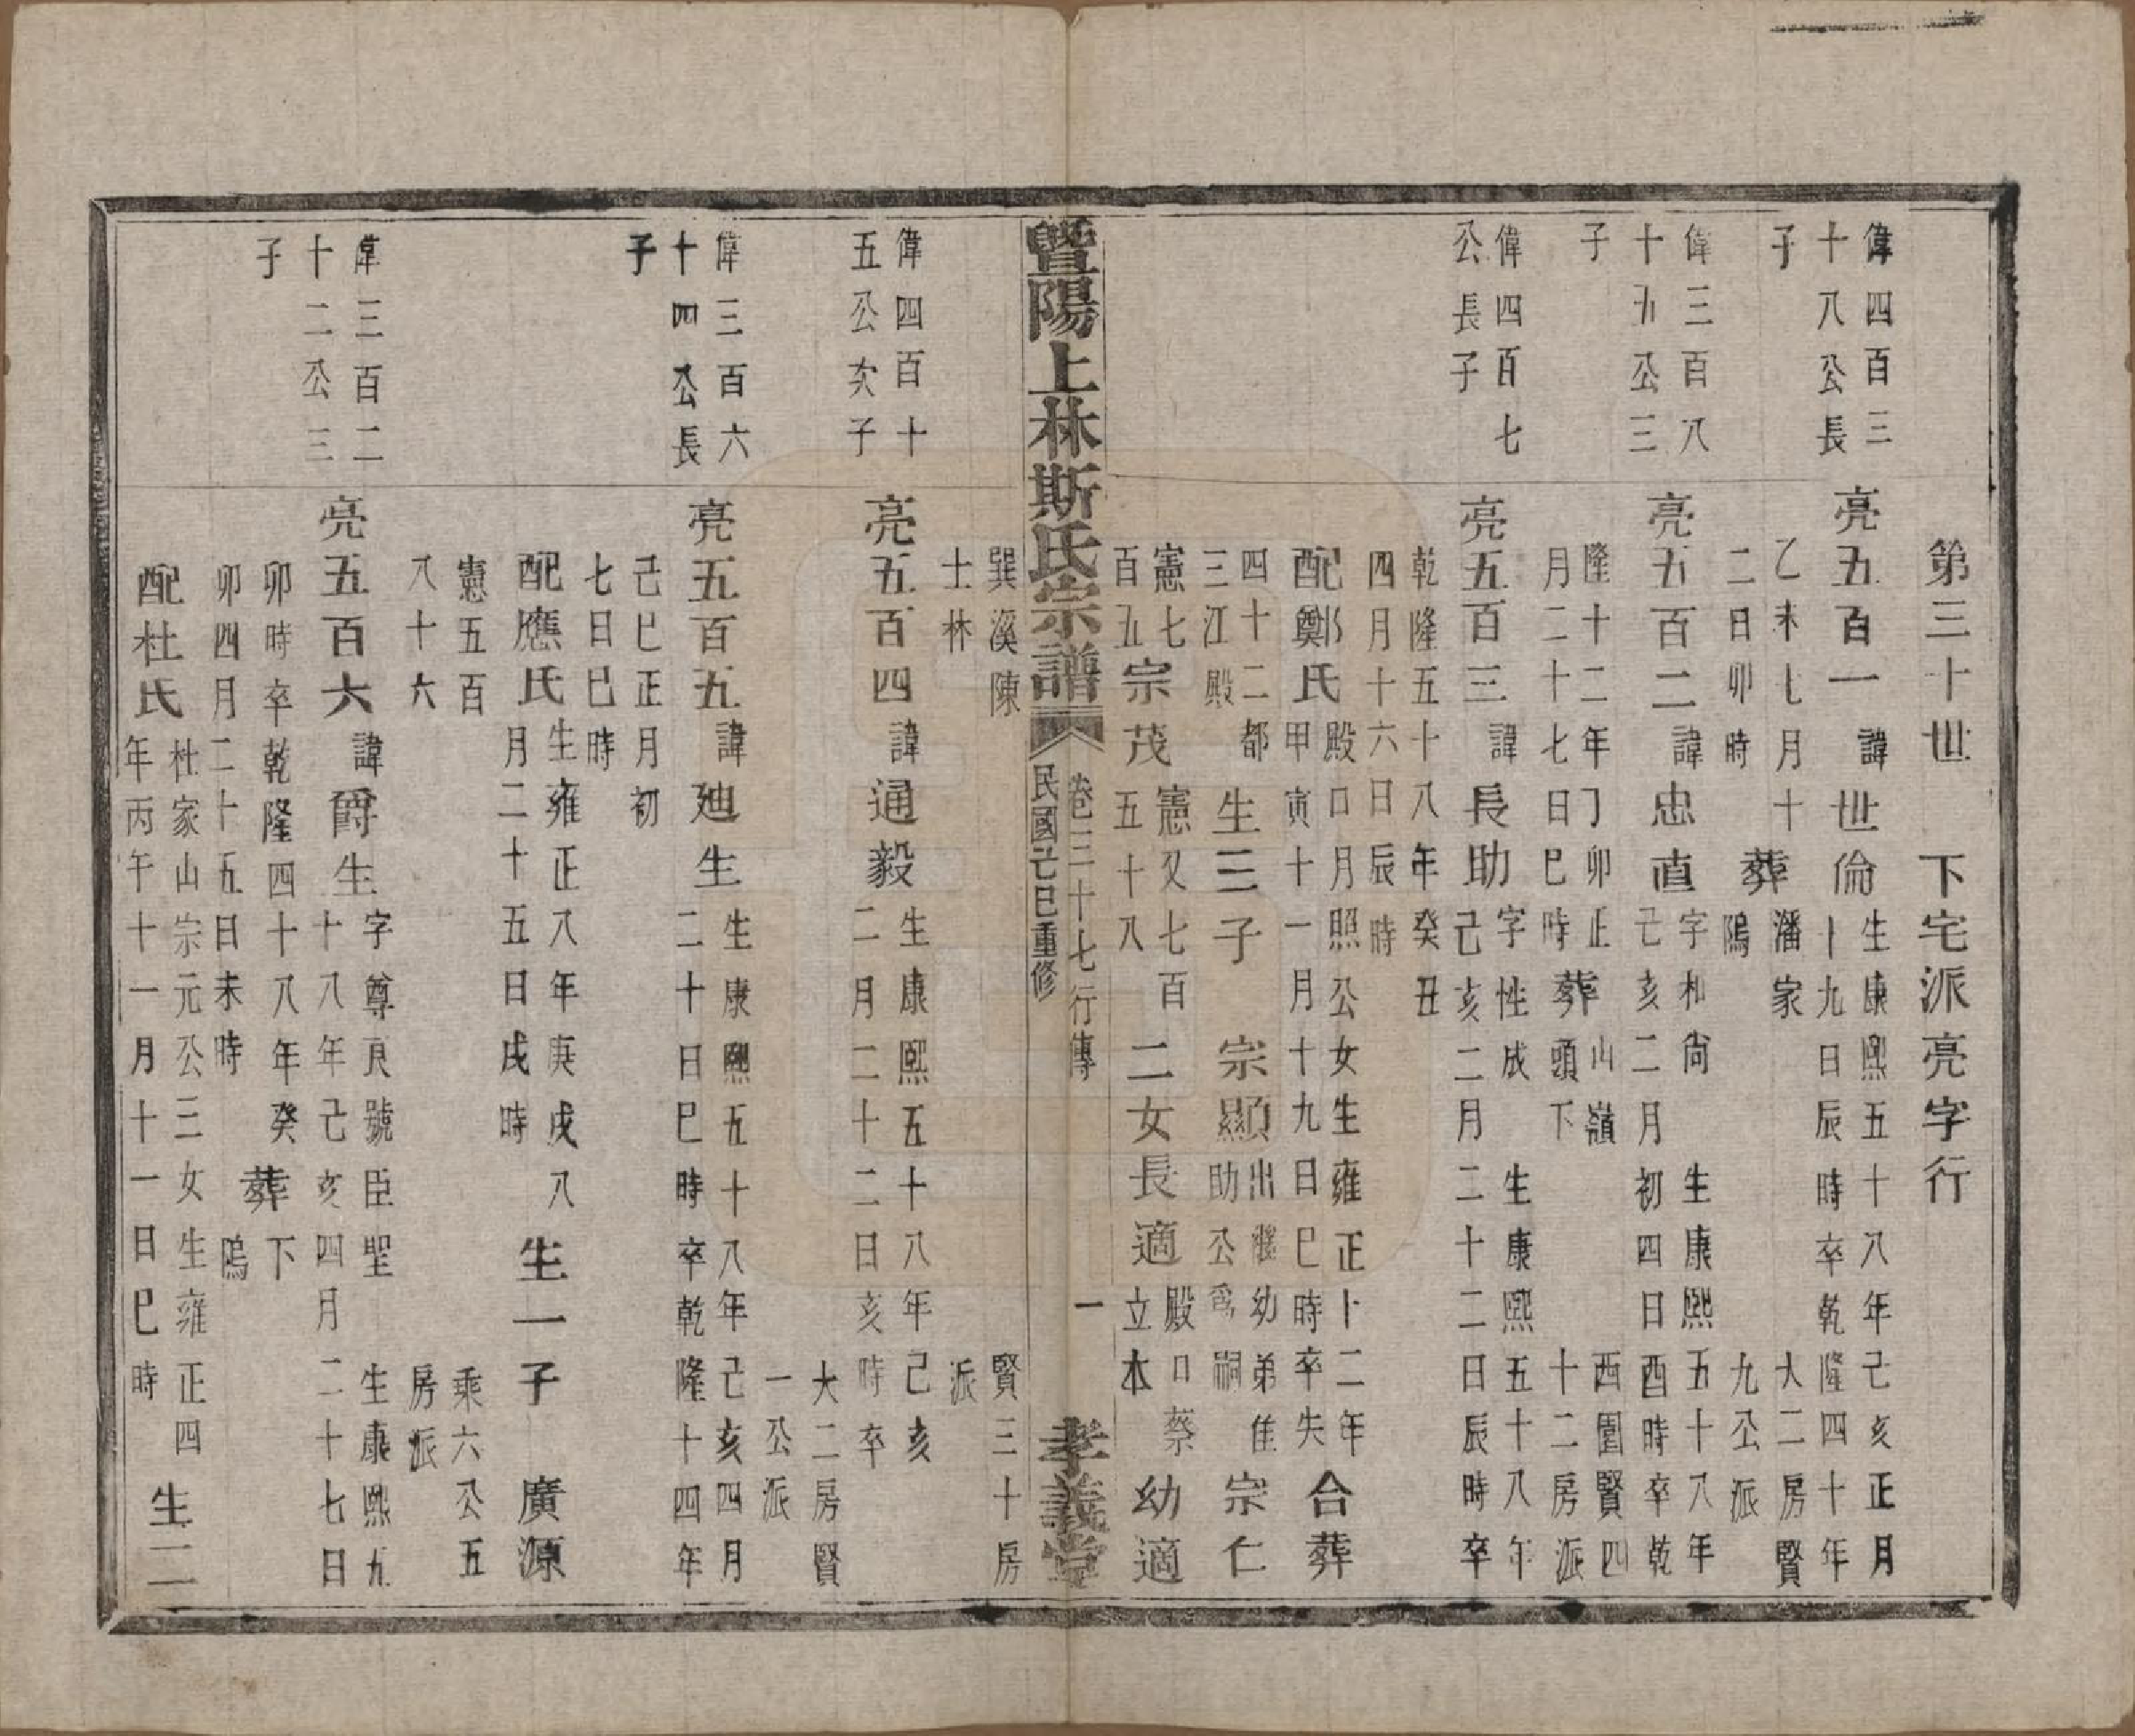 第三十世 下宅派亮字行
偉四百三
十八公長
子
亮五百一 諱世倫
生康熙五十八年己亥正月
十九日辰時卒乾隆四十年
乙未七月十
二日卯時
葬
潘家
塢
大二房賢
九公派
偉三百八
十九公三
子
亮五百二 諱忠直
字和尚 生康熙五十八年
己亥二月初四日酉時卒乾
隆十二年丁卯正
月二十七日巳時
葬
山嶺
頭下
西園賢四
十二房派
偉四百七
公長子
亮五百三 諱長助
字性成 生康熙五十八年
己亥二月二十二日辰時卒
乾隆五十八年癸丑
四月十六日辰時
配鄭氏
殿口月照公女生雍正十二年
甲寅十一月十九日巳時卒失
合葬
四十二都
三江殿
生三子 宗顯
出繼幼弟佳
助公爲嗣
宗仁
憲七
百五
宗茂
憲又七百
五十八
二女長適
殿口蔡
立本
幼適
暨陽上林斯氏宗譜
卷三十七行傳
民國己巳重修
一
孝義堂
巽溪陳
士林
賢三十房
派
偉四百十
五公次子
亮五百四 諱通毅
生康熙五十八年己亥
二月二十二日亥時卒
大二房賢
一公派
偉三百六
十四公長
子
亮五百五 諱廸生
生康熙五十八年己亥四月
二十日巳時卒乾隆十四年
己巳正月初
七日巳時
配應氏
生雍正八年庚戌八
月二十五日戌時
生一子 廣源
憲五百
八十六
乘六公五
房派
偉三百二
十二公三
子
亮五百六 諱爵生
字尊良號臣聖 生康熙五
十八年己亥四月二十七日
卯時卒乾隆四十八年癸
卯四月二十五日未時
葬
下
塢
配杜氏
杜家山宗元公三女生雍正四
年丙午十一月十一日巳時
生二